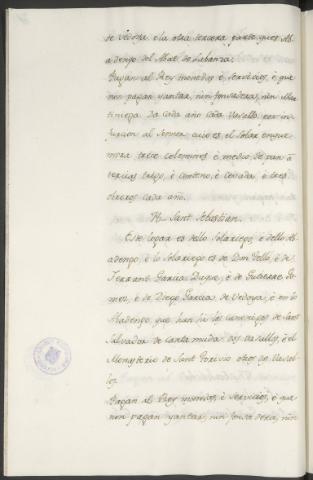 de Vedoya, e la otra tercera parte que es A-
badengo del Abat de Lebanza.
Pagan al Rey monedas è servicios, è que
non pagan yantar, nin fonsadera, nin Mar-
tiniega. Da cada año cada Vasallo por in-
furcion al Sennor, cuio es el solar en que
mora trece celemines è medio de pan à
tercias trigo, è centeno, è cevada, è tres
dineros cada año.
Sant Sebastian.
Este logar es dello Solariego, è dello Ab-
adengo, è lo Solariego es de Don Tello, è de
Ferrant Garcia Duque, è de Gutierre Go-
mez, è de Diego Garcia de Vedoya, è en lo
Abadengo, que han hi los canonigos de Sant
Salvador de Cantamuda dos vasallos, è el
Monesterio de Sant otros dos Vasallos
Pagan al Rey servicios, è que
non pagan yantar, nin fonsadera, nin